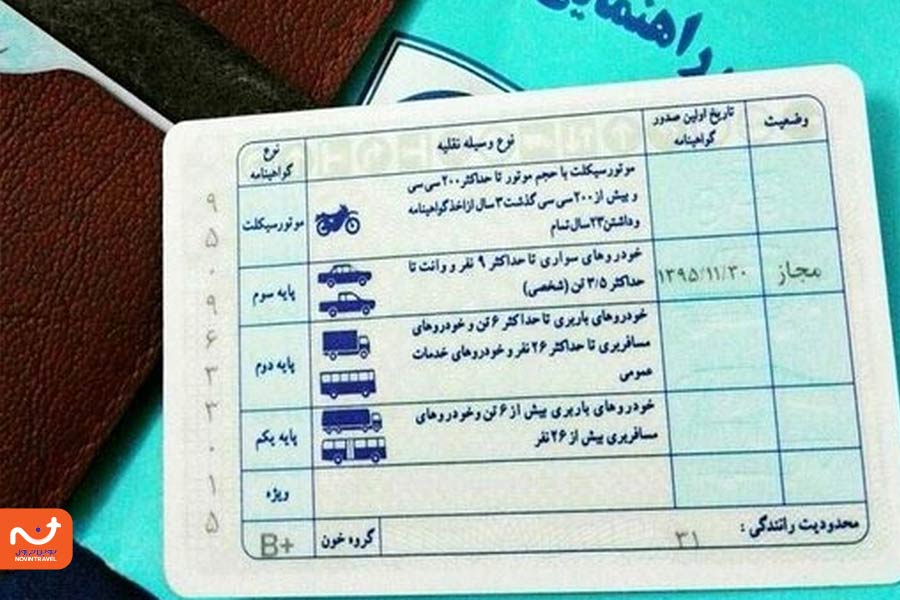 راهنمایی
وضعیت
تاریخ اولین صدور
گواهینامه
نوع وسیله نقلیه
نوع
گواهینامه
موتورسیکلت با حجم موتور تا حداکثر ۲۰۰ سی سی
و بیش از ۲۰۰ سی سی گذشت ۳ سال از اخذ گواهینامه
و داشتن ۲۳ سال تمام
موتورسیکلت
مجاز
۱۳۹۵/۱۱/۳۰
خودروهای سواری تا حداکثر ۹ نفر و وانت تا
حداکثر ۳/۵ تن (شخصی)
پایه سوم
خودروهای باربری تا حداکثر ۶ تن و خودروهای
مسافربری تا حداکثر ۲۶ نفر و خودروهای خدمات
عمومی
پایه دوم
خودروهای باربری بیش از ۶ تن و خودروهای
مسافربری بیش از ۲۶ نفر
پایه یکم
ویژه
محدودیت رانندگی :
۳۱
گروه خون
B+
۹
۵
۰
۹
۶
۳
۳
۰
۱
۵
نوین تراول
NOVIN TRAVEL